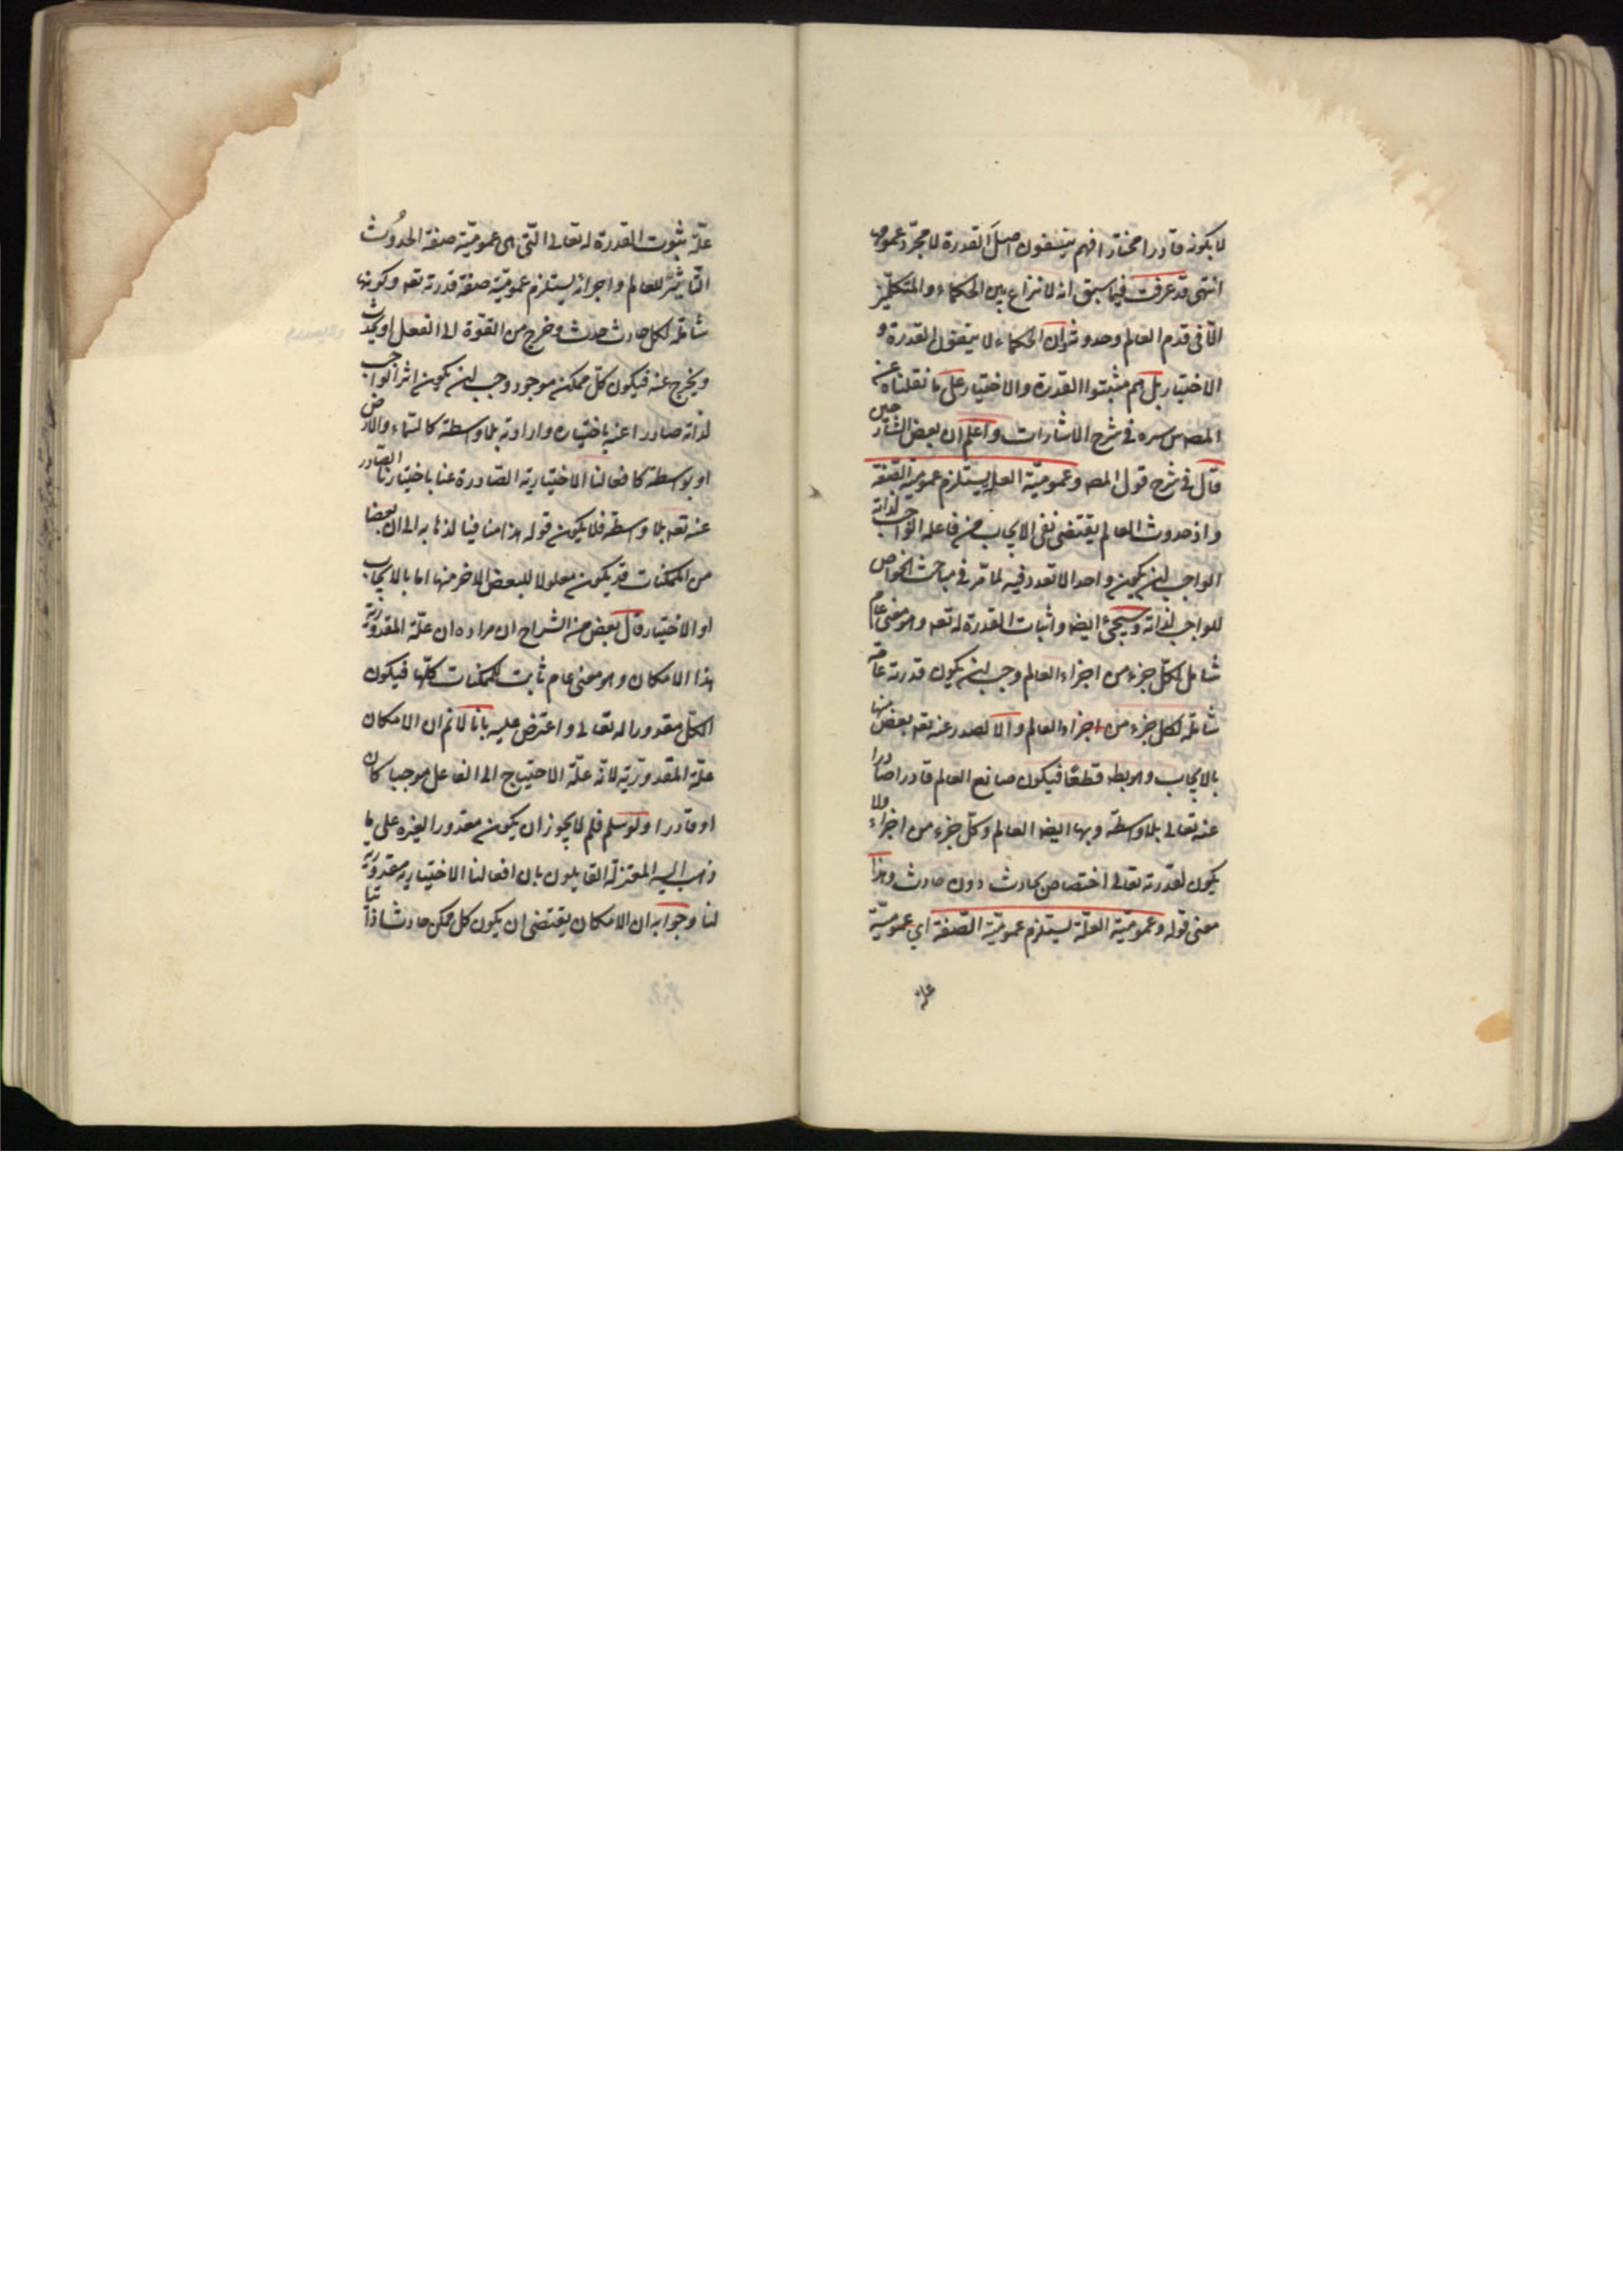 لا بكونه قادرا مختارا فهم ينفون اصل القدرة لا مجرد عمومها
انتهى قد عرفت فيما سبق انه لا نزاع بين الحكماء والمتكلمين
الا فى قدم العالم وحدوثه وان الحكماء لا ينفون القدرة و
الاختيار بل هم مثبتوا القدرة والاختيار على ما نقلناه عن
المص س سره فى شرح الاشارات واعلم ان بعض الشارحين
قال فى شرح قول المص وعموميّة العلة يستلزم عموميّة الصّفة
واذ حدوث العالم يقتضى نفى الايجاب من فاعله الواجب لذاته
الواجب لن يكون واحدا لا تعدد فيه لما مرّ فى مباحث الخواص
للواجب لذاته وسيجئ ايضا واثبات القدرة له تعه وهو معنى عام
شامل لكلّ جزء من اجزاء العالم وجب لن يكون قدرته عامّة
شاملة لكل جزء من اجزاء العالم والا لصدر عنه تعه بعض منها
بالايجاب وهو بط قطعًا فيكون صانع العالم قادرا صادرا
عنه تعالى بلا وسطة وبها ايضا العالم وكلّ جزء من اجزاء ولا
يكون لقدرته تعالى اختصاص بحادث دون حادث وهذا
معنى قوله وعموميّة العلّة يستلزم عموميّة الصّفة اي عموميّة
علة
علّة ثبوت القدرة له تعالى التى هى عموميّة صفة الحدُوث
التاثيرّ للعالم واجزائه يستلزم عموميّة صفة قدرته تعه وكونها
شاملة لكل حادث حدث وخرج من القوّة الى الفعل او يحدث
ويخرج عنه فيكون كلّ ممكن موجود وجب لن يكون اثر الواجب
لذاته صادرا عنه باختياره وارادته بلا وسطة كالسّماء والارض
او بوسطة كافعالنا الاختيارية الصّادرة عنا باختيارنا الصّادر
عنه تعه بلا وسطة فلا يكون قوله هذا منافيا لذهابه الى ان بعضا
من الممكنات قد يكون معلولا للبعض الاخر منها اما بالايجاب
او الاختيار قال بعض من الشراح ان مراده ان علّة المقدوريّة
هذا الامكان وهو معنى عام ثابت للممكنات كلّها فيكون
الكلّ مقدورا له تعالى واعترض عليه بانا لا نم ان الامكان
علّة المقدوريّة لانّه علّة الاحتياج الى الفاعل موجبا كان
او قادرا ولو سلم فلم لا يجوز ان يكون مقدورا لغيره على ما
ذهب اليه المعتزلة القايلون بان افعالنا الاختيارية مقدورية
لنا وجوابه ان الامكان يقتضى ان يكون كل ممكن حادثا ذاتيا